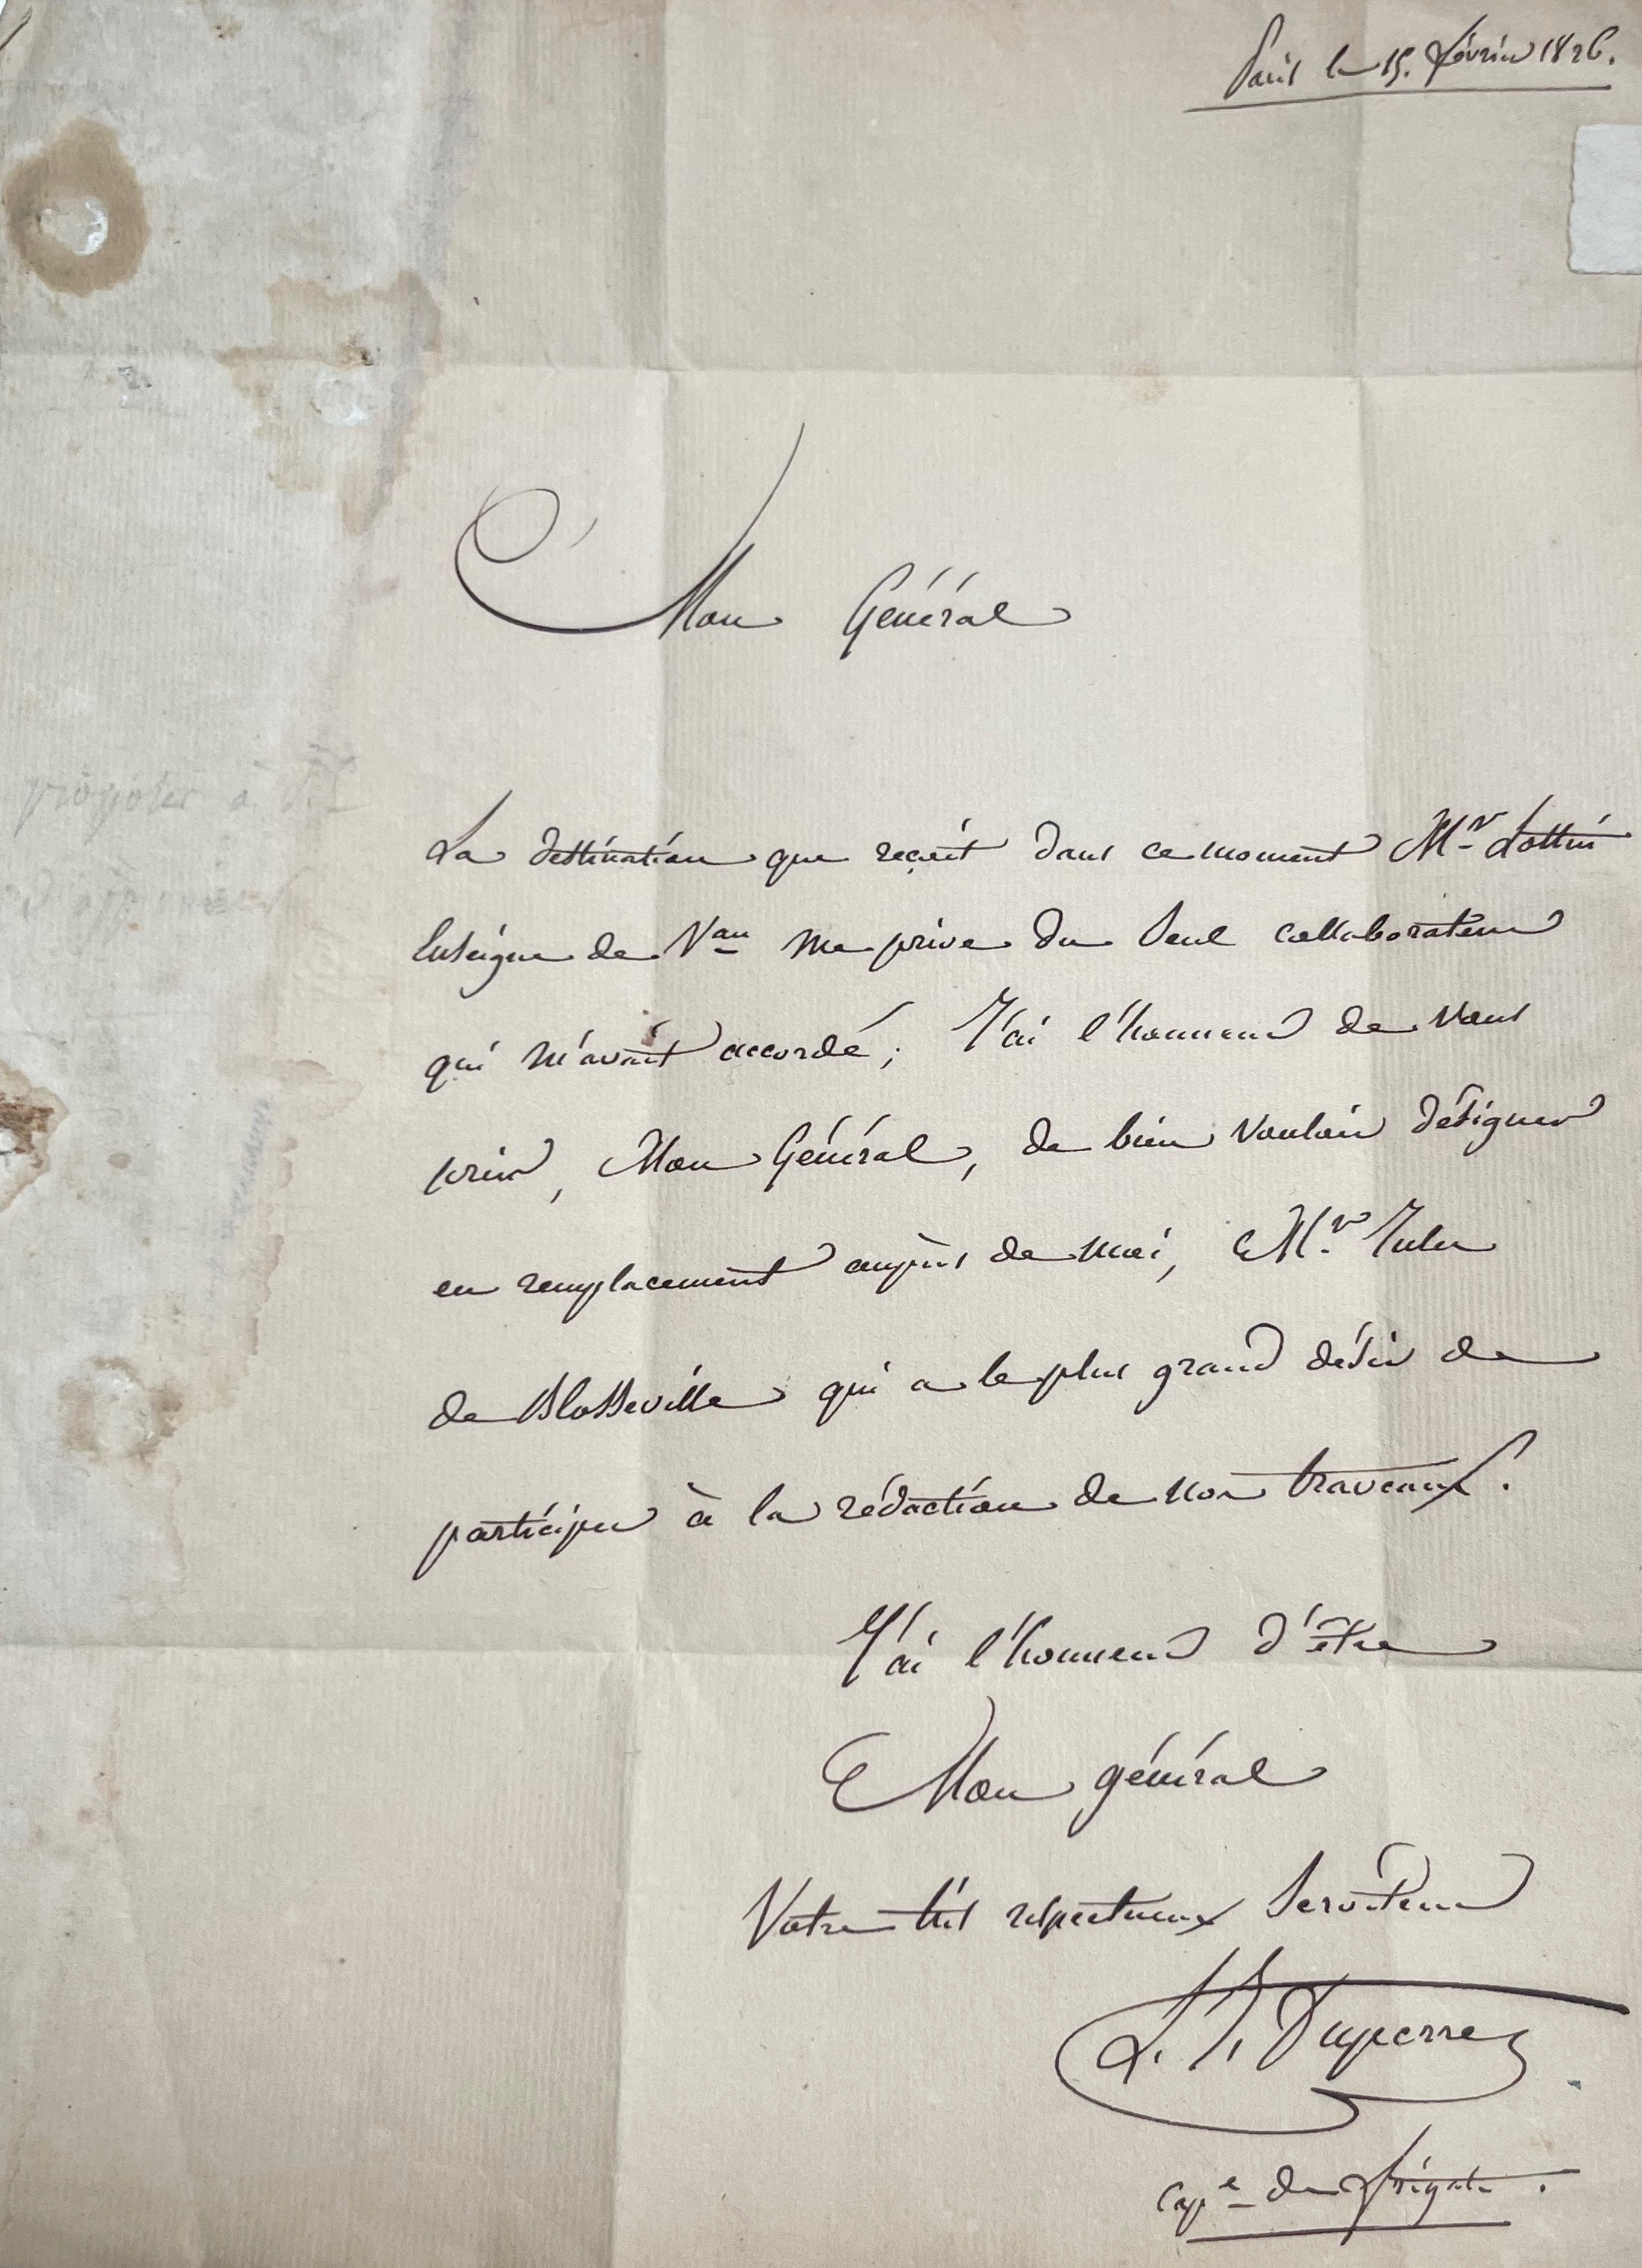 Paris le 15. février 1826.
Mon Général
proposer à
La destination que reçoit dans ce moment Mr. Lottin
Enseigne de Vau me prive du seul collaborateur
qui m'avait accordé; J'ai l'honneur de vous
prier, Mon Général, de bien vouloir désigner
en remplacement auprès de moi, Mr. Jules
de Blosseville qui a le plus grand désir de
participer à la rédaction de nos travaux.
J'ai l'honneur d'être
Mon général
Votre très respectueux Serviteur
L. I. Duperrey
cape de frégate.